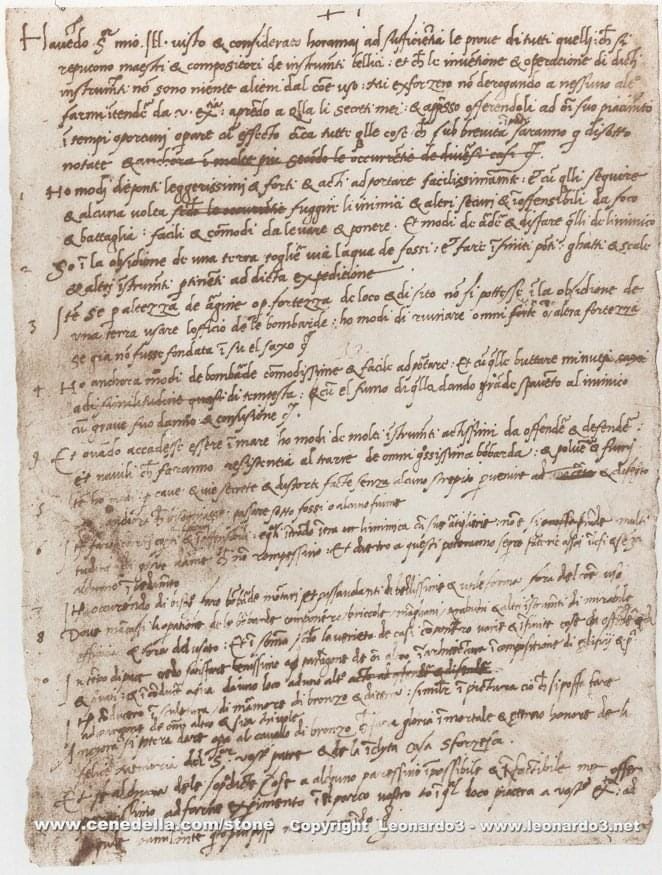 + 1
Havēdo S.r mio Ill. visto & considerato horamai ad sufficiētia le prove di tutti quelli ch si
reputono maestri & compositori de instrumti bellici : et ch le invētione & operatione di dicti
instrumti nō sono niente alieni dal cōe uso : mi exforzero nō derogando a nessuno altro
farmi intendē da v. ex.tia : aprēdo a q̄lla li secreti mei : & appsso offerendoli ad ōi suo piacimto
ī tempi oportuni operare cū effecto circa tutte q̄lle cose ch sub brevita saranno q disotto
notate & anchora ī molte piu secūdo le occurrentie de diversi casi
1 Ho modi de ponti leggerissimi & forti & acti ad portare facilissimamte : et cū q̄lli seguire
& alcuna volta secōdo le occurrētie fuggire li inimici & altri securi & inoffensibili da foco
& battaglia : facili & cōmodi da levare & ponere. Et modi de ardē & disfare q̄lli de linimico
2 So ī la obsidione de una terra togliē via laqua de fossi : et fare ifiniti pōti ghatti & scale
& altri istrumti ptinēti ad dicta expeditione
3 Itē se p altezza de argine o p fortezza de loco & di sito nō si pottesse ī la obsidione de
una terra usare lofficio de le bombarde : ho modi di ruinare omni forte o altra fortezza
se gia nō fusse fondata ī su el saxo
4 Ho anchora modi de bombarde cōmodissime & facile ad portare : Et cū q̄lle buttare minuti
ad similitudine quasi di tempesta : & cū el fumo di q̄lla dando grāde spavēto al inimico
cū grave suo danno & confusione
9 Et quādo accadesse essere ī mare ho modi de molti istrumti actissimi da offendē & defendē :
et navili ch faranno resistentia al trarre de omni g̃ssissima bōbarda : & polvē & fumi
5 Itē ho modi p cave & vie secrete & distorte facte senza alcuno strepito p venire ad & disegnato
anchora ch bisognasse passare sotto fossi o alcuno fiume
6 Itē carri coperti & inoffensibili : e q̄li ītrādo intra li inimica cū sue artiglierie : nō e si grande multi
tudine di gente darme ch nō rompessino : Et dietro a questi poterāno seguire fāterie assai illesi & senza
alchuno ipedimēto
7 Itē occurrendo di bisōgno faro bōbarde mortari et passavolanti di bellissime & utile forme fora del cōe uso
8 Dove mācassi la opatione de le bōbarde componēro briccole māghani trabuchi & altri istrumti di mirabile
efficacia & fora del usato : Et ī sōma secōdo la varieta de casi cōponēro varie & ifinite cose da offendē
10 In tēpo di pace credo satisfare benissimo ad paragone de ōi altro ī architectura ī compositione di edificii &
& privati : & ī conducē aqua da uno loco ad uno altro acto ad offendē & difendē
Itē conducero ī sculptura di marmore di bronzo & di terra : similr̄ ī pictura cio ch si possa fare
ad paragone de omni altro & sia chi vole
Ancora si potera dare opa al cavallo di bronzo ch sara gloria ī mortale & eterno honore de la
felice memoria del S.re vostro patre & de la īclyta casa Sforzesca.
Et se alchuna de le sopra dicte cose a alcuno paressino ipossibile & infactibile me offero
paratissimo ad farne experimento ī el parco vostro o ī qual loco piacera a vostra ex. ad
www.cenedella.com/stone Copyright Leonardo3 - www.leonardo3.net